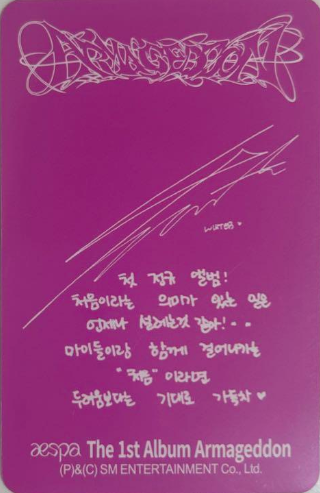 ARMAGEDDON
WINTER
첫 정규 앨범!
처음이라는 의미가 있는 일은
언제나 설레는것 같아!
마이들이랑 함께 걸어나가는
"처음" 이라면
두려움보다는 기대로 가득차 ♥
aespa The 1st Album Armageddon
(P)&(C) SM ENTERTAINMENT Co., Ltd.